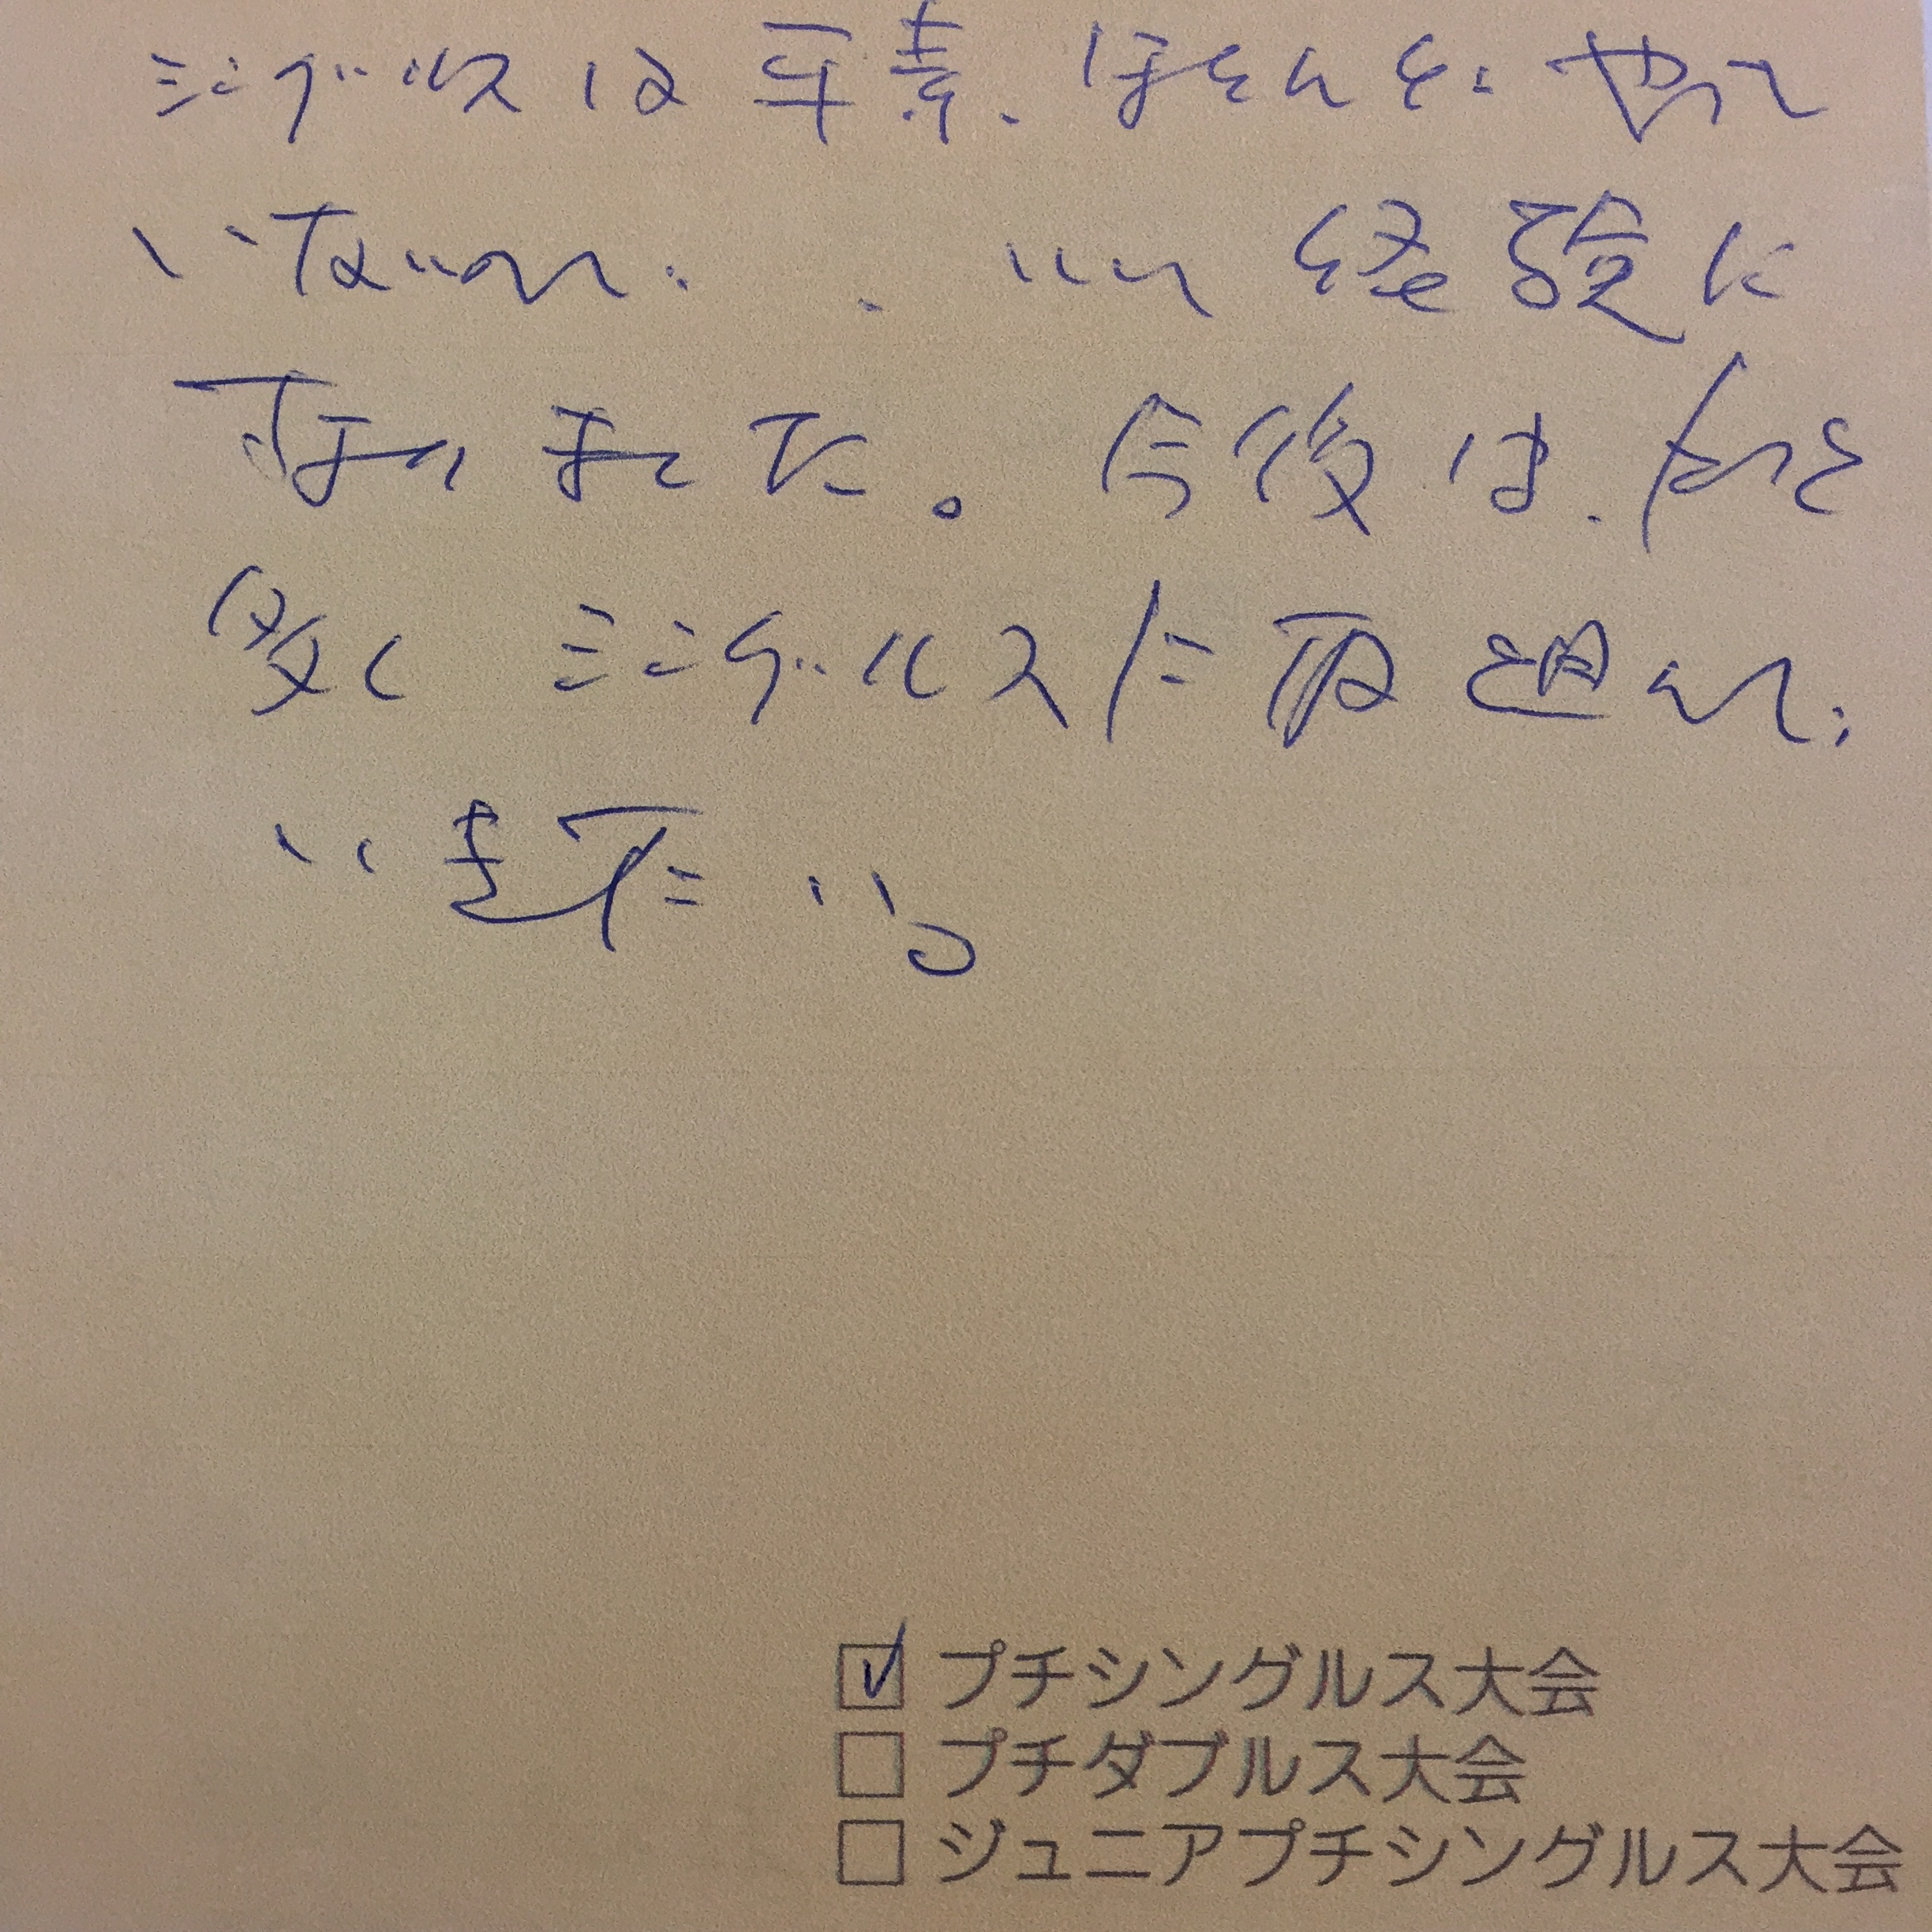 シングルスは平素、ほとんどやって
いないので、いい経験に
なりました。今後は、もっと
多くシングルスに取り組んで
いきたい。
☑ プチシングルス大会
☐ プチダブルス大会
☐ ジュニアプチシングルス大会